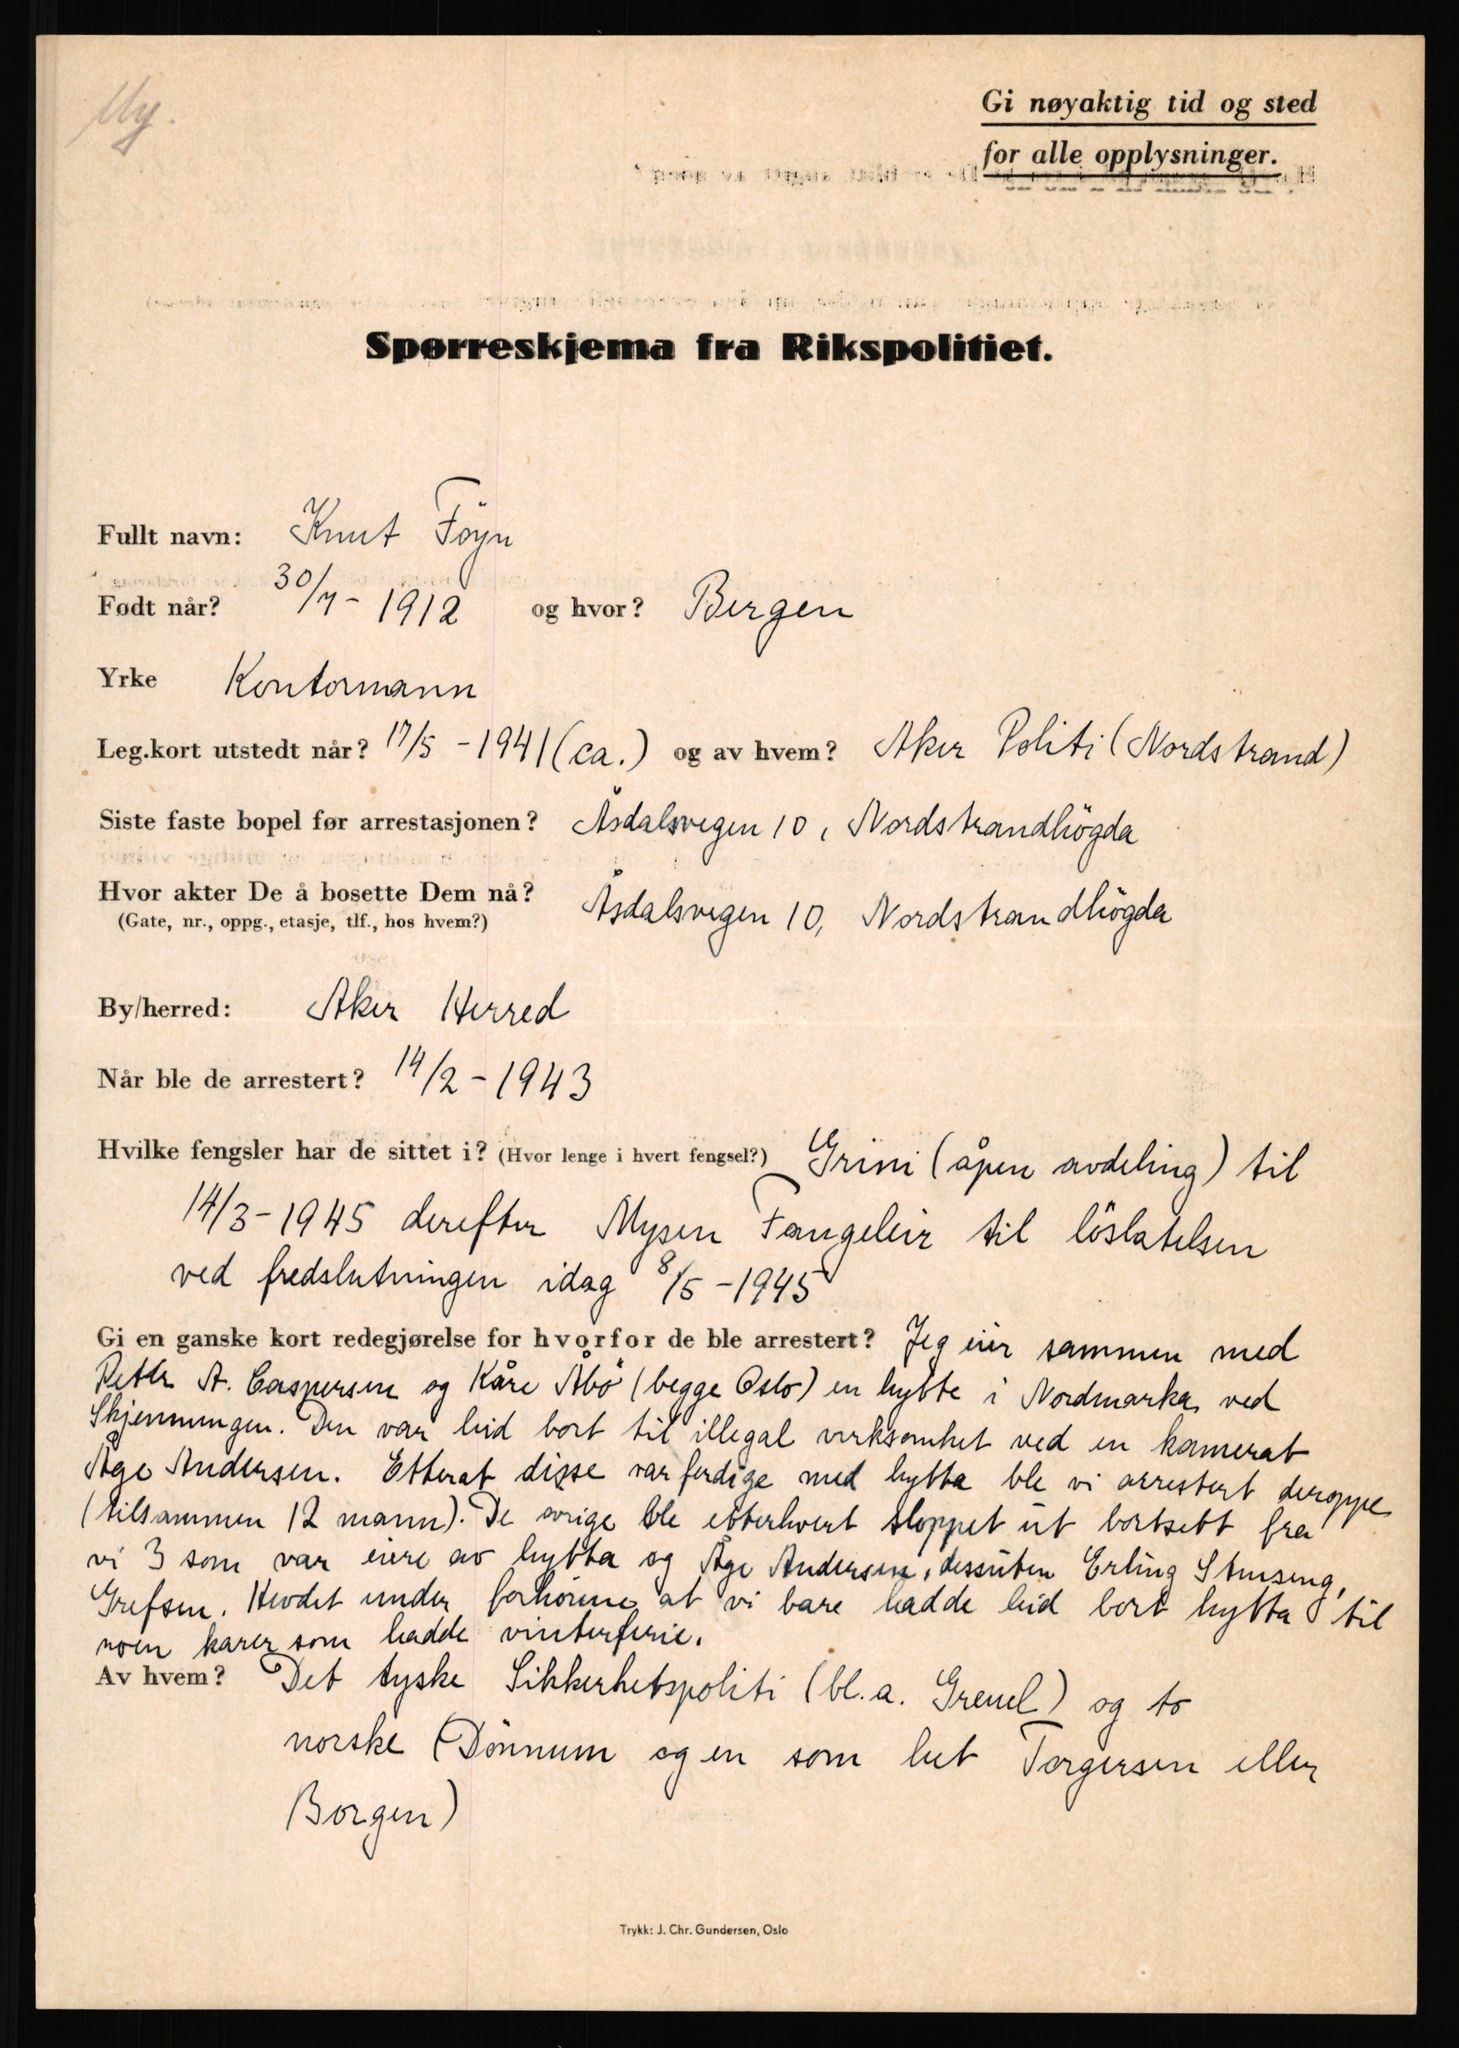 My.
Gi nøyaktig tid og sted
for alle opplysninger.
Spørreskjema fra Rikspolitiet.
Fullt navn: Knut Föyn
Født når? 30/7 - 1912 og hvor? Bergen
Yrke Kontormann
Leg.kort utstedt når? 17/5 - 1941 (ca.) og av hvem? Aker Politi (Nordstrand)
Siste faste bopel før arrestasjonen? Åsdalsvegen 10, Nordstrandhögda
Hvor akter De å bosette Dem nå? Åsdalsvegen 10, Nordstrandhögda
(Gate, nr., oppg., etasje, tlf., hos hvem?)
By/herred: Aker Herred
Når ble de arrestert? 14/2 - 1943
Hvilke fengsler har de sittet i? (Hvor lenge i hvert fengsel?) Grini (åpen avdeling) til
14/3 - 1945 derefter Mysen Fangeleir til löslatelsen
ved fredslutningen idag 8/5 - 1945
Gi en ganske kort redegjørelse for hvorfor de ble arrestert? Jeg eier sammen med
Petter A. Caspersen og Kåre Åbö (begge Oslo) en hytte i Nordmarka ved
Skjenningen. Den var leid bort til illegal virksomhet ved en kamerat
Åge Andersen. Etterat disse var ferdige med hytta ble vi arrestert deroppe
(tilsammen 12 mann). De øvrige ble etterhvert sloppet ut bortsett fra
vi 3 som var eiere av hytta og Åge Andersen, dessuten Erling Stuseng,
Grefsen. Hevdet under forhörene at vi bare hadde leid bort hytta til
noen karer som hadde vinterferie.
Av hvem? Det tyske Sikkerhetspoliti (bl.a. Greuel) og to
norske (Dönnum og en som het Torgersen eller
Borgen)
Trykk: J. Chr. Gundersen, Oslo